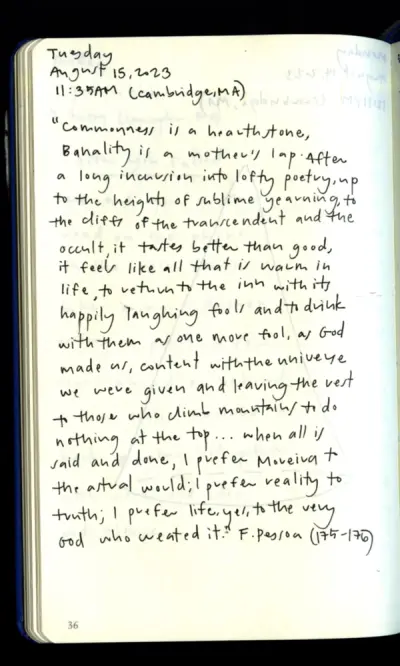 Tuesday
August 15, 2023
11:35AM (Cambridge, MA)
"Commonness is a hearthstone,
Banality is a mother's lap. After
a long incursion into lofty poetry, up
to the heights of sublime yearning, to
the cliffs of the transcendent and the
occult, it tastes better than good,
it feels like all that is warm in
life, to return to the inn with its
happily laughing fools and to drink
with them as one more fool, as God
made us, content with the universe
we were given and leaving the rest
to those who climb mountains to do
nothing at the top... when all is
said and done, I prefer Moreira to
the astral world; I prefer reality to
truth; I prefer life, yes, to the very
God who created it." F. Pessoa (175-176)
36